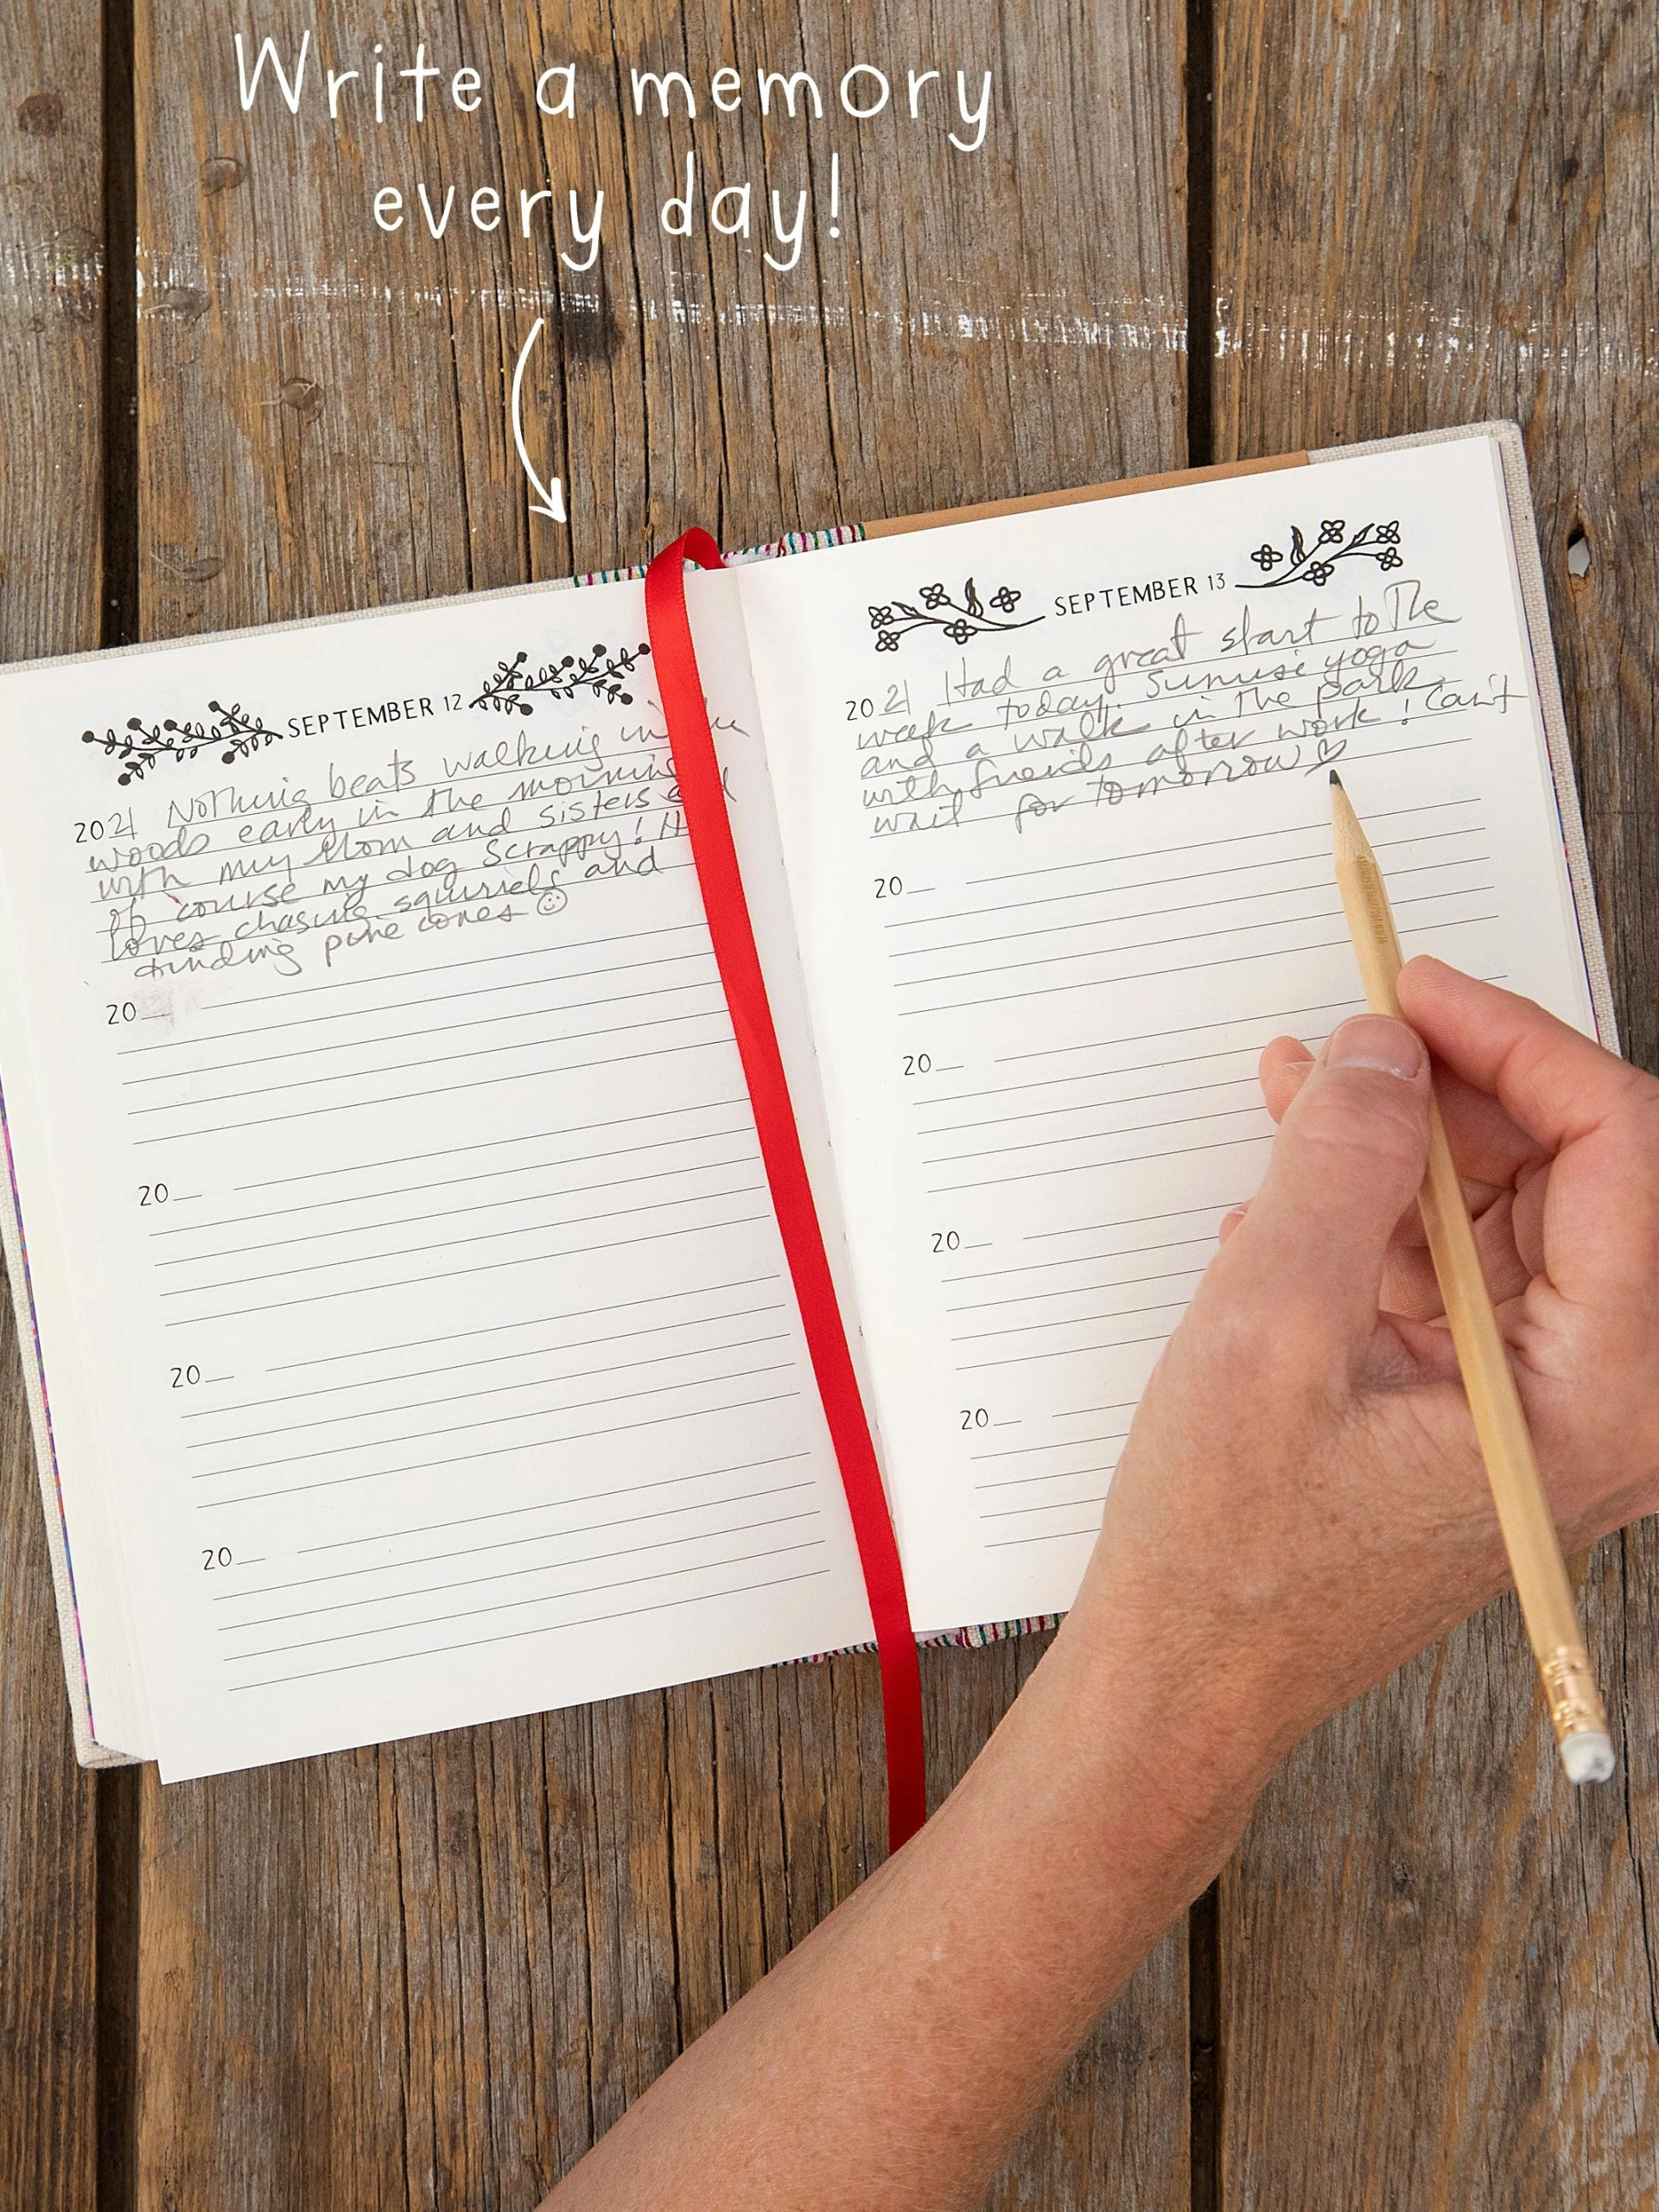 Write a memory
every day!
SEPTEMBER 12
2021 Nothing beats walking in
woods early in the morning
with my Mom and sisters
of course my dog Scrappy! H
loves chasing squirrels and
finding pine cones ☺
20
20
20
20
SEPTEMBER 13
2021 Had a great start to the
week today. Sunrise yoga
and a walk in the park
with friends after work! Can't
wait for tomorrow ♡
20
20
20
20